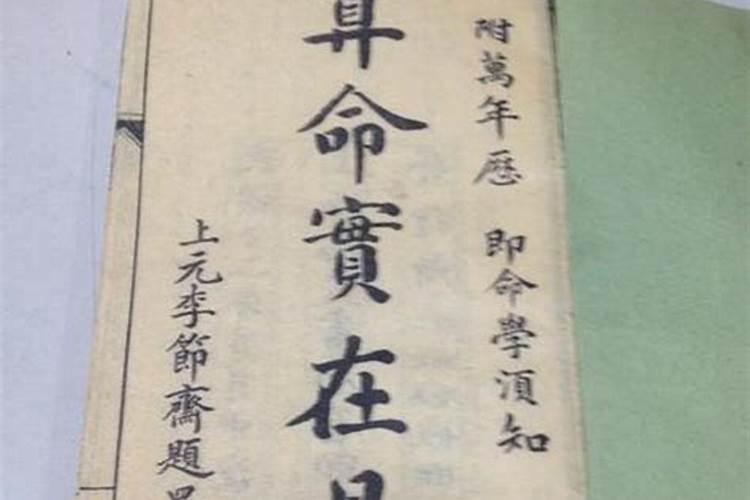 附萬年歷 即命學須知
算命實在
上元李節齋題